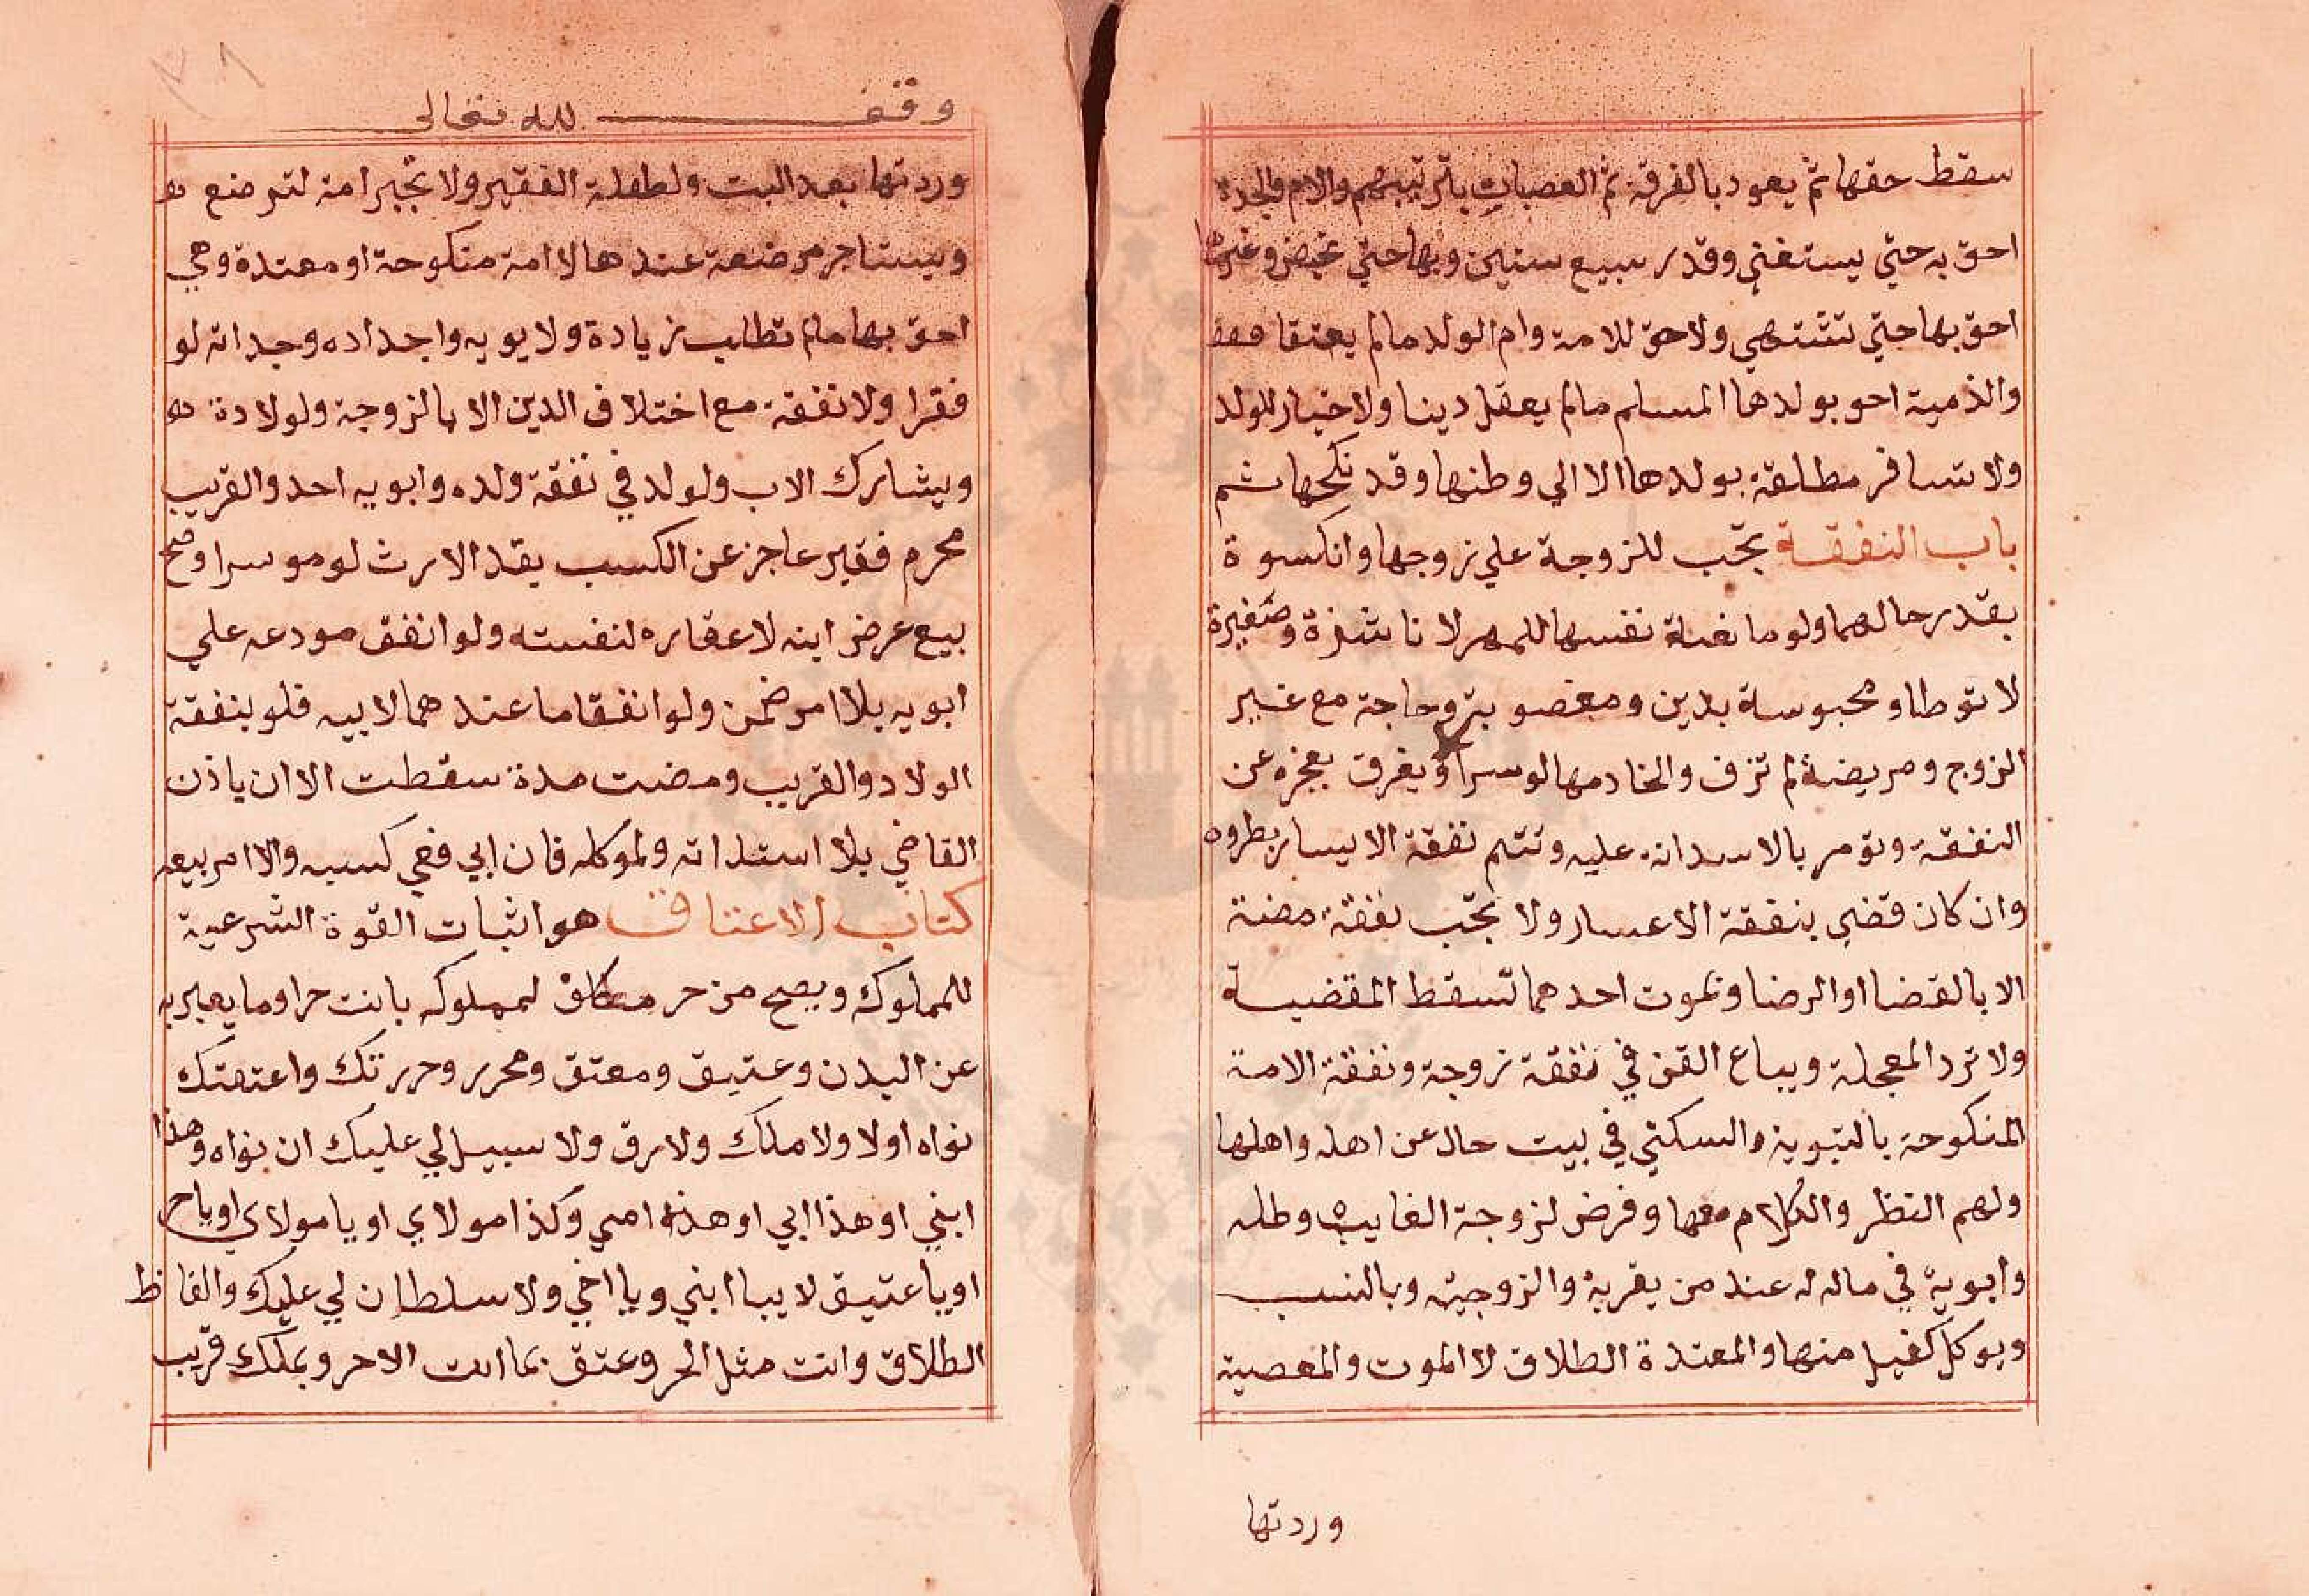 سقط حقها ثم يعود بالفرقة ثم العصبات بترتيبهم والام والجدة
احق به حتي يستغني وقدر سبع سنين وبها حتي تحيض وغيرها
احق بها حتي تشتهي ولا حق للامة وام الولد مالم يعتقا
والذمية احق بولدها المسلم مالم يعقل دينا ولا خيار للولد
ولا تسافر مطلقة بولدها الا الي وطنها وقد نكحها ثم
باب النفقة تجب للزوجة علي زوجها والكسوة
بقدر حالهما ولو مانعة نفسها للمهر لا ناشزة وصغيرة
لا توطا ومحبوسة بدين ومغصوبة وحاجة مع غير
الزوج ومريضة لم تزف والخادمها لو موسرا ولا يفرق بعجزه عن
النفقة وتؤمر بالاستدانة عليه وتتم نفقة الايسار بطروه
وان كان قضي بنفقة الاعسار ولا تجب نفقة مضت
الا بالقضا او الرضا وبموت احدهما تسقط المقضية
ولا ترد المعجلة ويباع القن في نفقة زوجة ونفقة الامة
المنكوحة بالتبوية والسكني في بيت خال عن اهله واهلها
ولهم النظر والكلام معها وفرض لزوجة الغايب وطفله
وابويه في مال له عند من يقر به والزوجية وبالنسب
ويوكل كفيل منها والمعتدة الطلاق لا الموت والمعصية
وردتها
وقف لله تعالى
وردتها بعد البت ولطفله الفقير ولا تجبر امه لترضع
ويستاجر مرضعة عندها لا امه منكوحة او معتدة وهي
احق بها مالم تطلب زيادة ولابويه واجداده وجداته لو
فقرا ولا نفقة مع اختلاف الدين الا بالزوجة ولولادة
ويشارك الاب ولولد في نفقة ولده وابويه احد والقريب
محرم فقير عاجز عن الكسب بقد الارث لو موسرا وصح
بيع عرض ابنه لا عقاره لنفسته ولو انفق مودعه علي
ابويه بلا امر ضمن ولو انفقا ما عندهما لا بيه فلو بنفقة
الولاد والقريب ومضت مدة سقطت الا ان ياذن
القاضي بلا استدانه ولمملوكه فان ابي ففي كسبه والا امر ببيعه
كتاب الاعتاق هو اثبات القوة الشرعية
للمملوك ويصح من حر مكلف لمملوكه بانت حر او ما يعبر به
عن البدن وعتيق ومعتق ومحرر وحررتك واعتقتك
نواه اولا ولا ملك ولا رق ولا سبيل لي عليك ان نواه وهذا
ابني او هذا ابي او هذه امي وكذا مولاي او يا مولاي او يا حر
او يا عتيق لا بيا ابني ويا اخي ولا سلطان لي عليك والفاظ
الطلاق وانت مثل الحر وعتق بما انت الا حر وبملك قريب